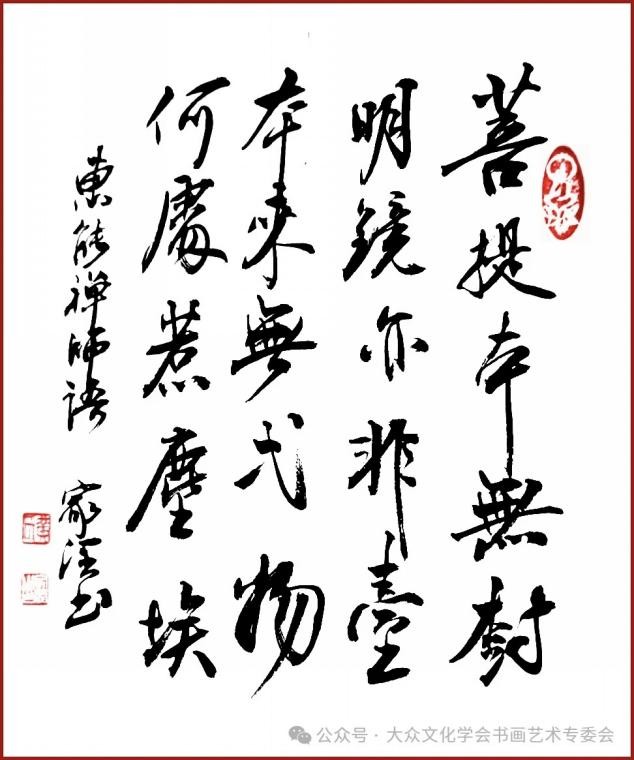 菩提本無樹
明鏡亦非臺
本來無弌物
何處惹塵埃
惠能禪師語 家
公众号 · 大众文化学会书画艺术专委会